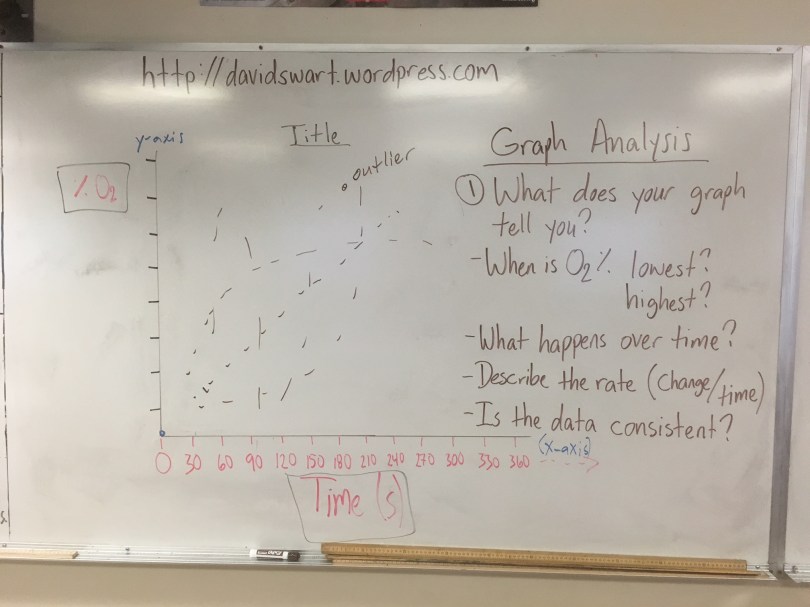 http://davidswart.wordpress.com
y-axis
Title
% O2
outlier
0 30 60 90 120 150 180 210 240 270 300 330 360
(x-axis)
Time (s)
Graph Analysis
① What does your graph
tell you?
-When is O2 % lowest?
highest?
-What happens over time?
-Describe the rate (change/time)
-Is the data consistent?
s.